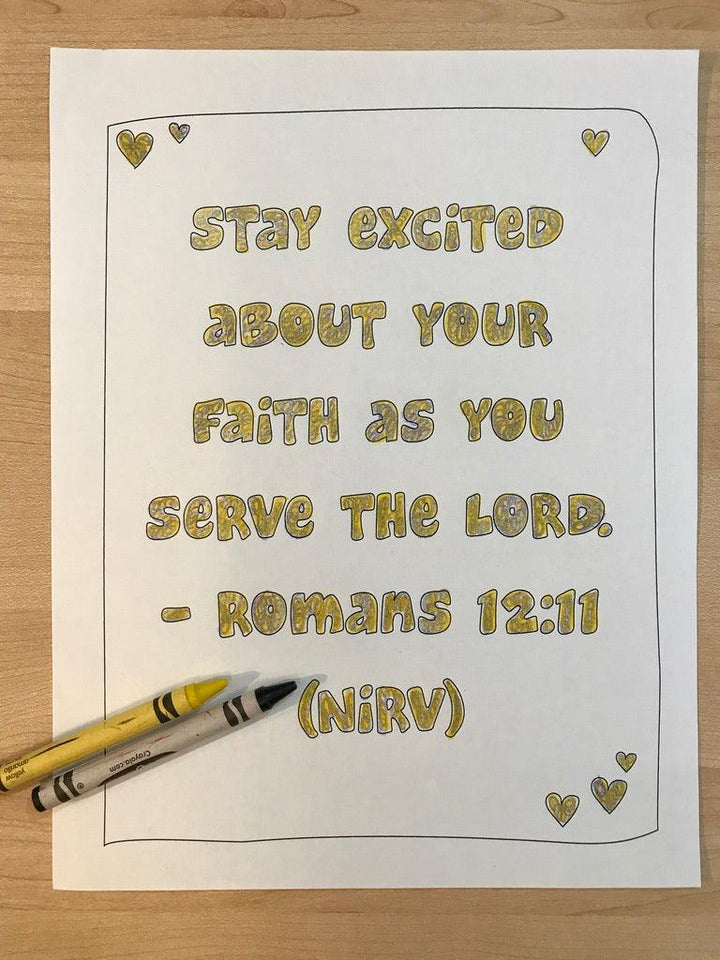 STaY eXCiTeD
aBOUT YOUR
FaiTH as YOU
SeRVe THe LORD.
- ROmans 12:11
(NiRV)
yellow
amarillo
Crayola.com